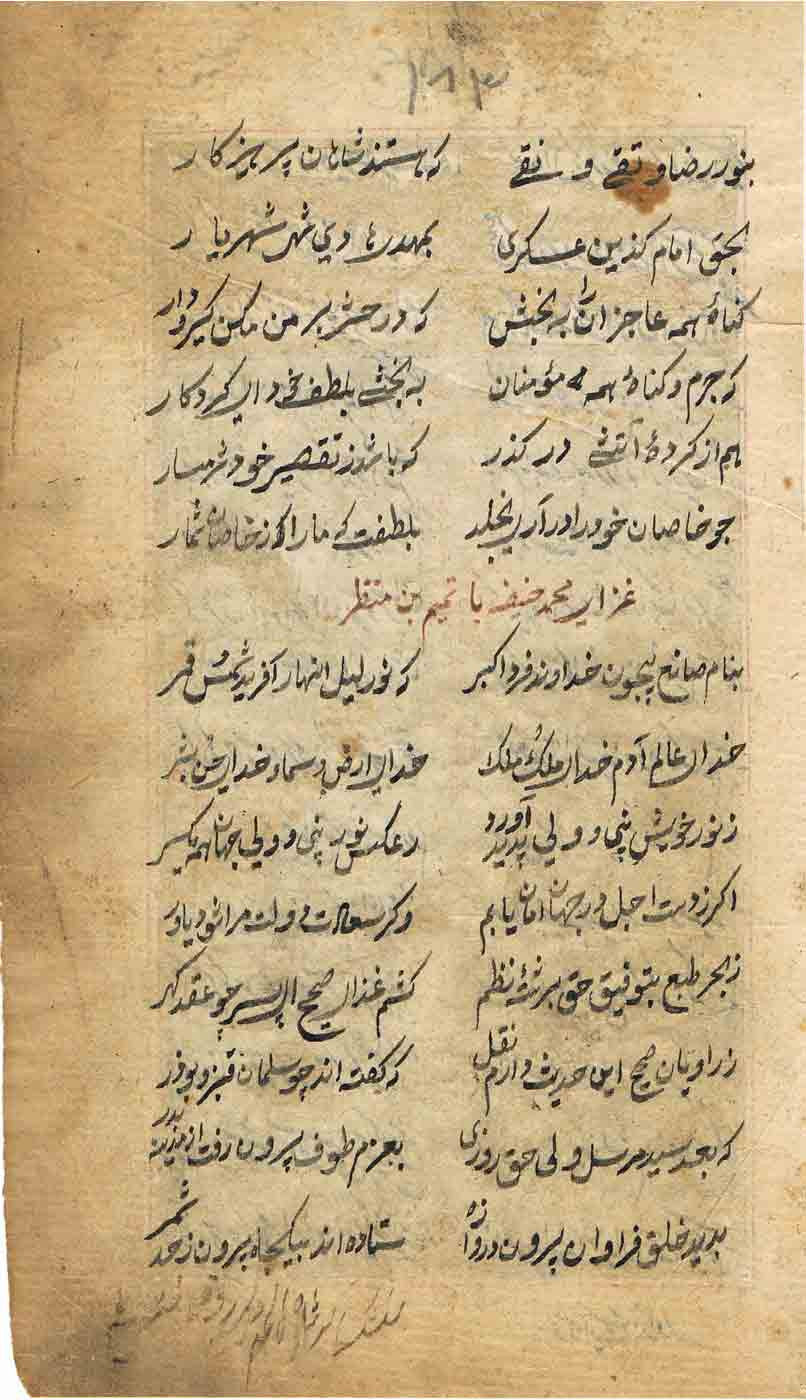 ۱۸۳
بنور رضا و تقی و نقی که هستند شاهان پرهیزکار
بحق امام گزین عسکری بمهدی هادی شه شهریار
کناهٔ همه عاجزان را به بخش که در حشر بر من مکن گیرودار
که جرم و کناهٔ همه مؤمنان به بخشی بلطف خود ای کردکار
هم از کردهٔ آتشی در کذر که باشد ز تقصیر خود شرمسار
چو خاصان خود را در آری بخلد بلطفت که ما را از خاصان شمار
غزای محمد حنیفه با تمیم بن منتظر
بنام صانع بیچون خداوند فرد اکبر که نور لیل النهار آفرید شمس قمر
خدای عالم آدم خدای ملک ملک خدای ارض و سما و خدای جن بشر
ز نور خویش نبی و ولی پدید آورد ز عکس نور نبی و ولی جهان همه یکسر
اکر ز دست اجل در جهان امان یابم وکر سعادت دولت مرا شود یاور
ز بحر طبع بتوفیق حق برشتهٔ نظم کشم غزای صحیح چو عقد کهر
ز راویان صحیح این حدیث دارم نقل که کفته اند چو سلمان قنبر و بوذر
که بعد سید مرسل ولی حق روزی بعزم طوف برون رفت از مدینه بدر
بدید خلق فراوان برون دروازه ستاده اند بیکجاه برون ز حد شمر